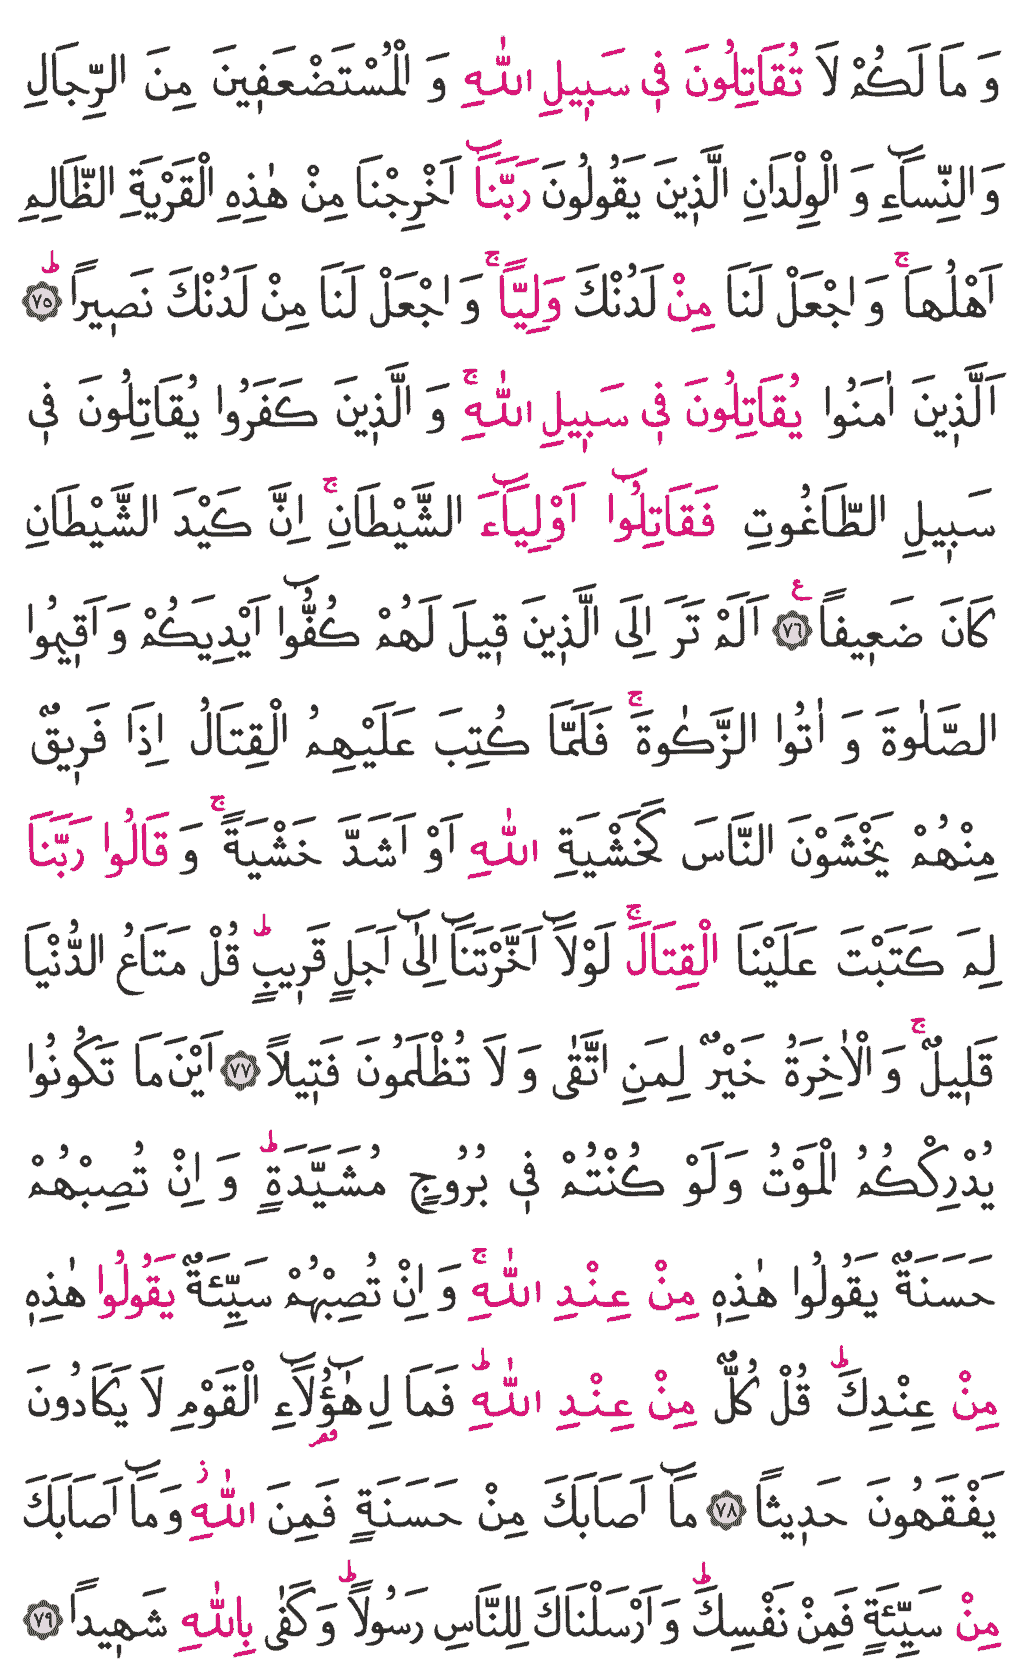 وَ مَا لَكُمْ لَا تُقَاتِلُونَ فٖي سَبٖيلِ اللّٰهِ وَ الْمُسْتَضْعَفٖينَ مِنَ الرِّجَالِ
وَ النِّسَٓاءِ وَ الْوِلْدَانِ الَّذٖينَ يَقُولُونَ رَبَّنَٓا اَخْرِجْنَا مِنْ هٰذِهِ الْقَرْيَةِ الظَّالِمِ
اَهْلُهَاۚ وَ اجْعَلْ لَنَا مِنْ لَدُنْكَ وَلِيًّاۚ وَ اجْعَلْ لَنَا مِنْ لَدُنْكَ نَصٖيراًؕ ﴿٧٥﴾
اَلَّذٖينَ اٰمَنُوا يُقَاتِلُونَ فٖي سَبٖيلِ اللّٰهِۚ وَ الَّذٖينَ كَفَرُوا يُقَاتِلُونَ فٖي
سَبٖيلِ الطَّاغُوتِ فَقَاتِلُٓوا اَوْلِيَٓاءَ الشَّيْطَانِۚ اِنَّ كَيْدَ الشَّيْطَانِ
كَانَ ضَعٖيفاً ع ﴿٧٦﴾ اَلَمْ تَرَ اِلَى الَّذٖينَ قٖيلَ لَهُمْ كُفُّٓوا اَيْدِيَكُمْ وَ اَقٖيمُوا
الصَّلٰوةَ وَ اٰتُوا الزَّكٰوةَۚ فَلَمَّا كُتِبَ عَلَيْهِمُ الْقِتَالُ اِذَا فَرٖيقٌ
مِنْهُمْ يَخْشَوْنَ النَّاسَ كَخَشْيَةِ اللّٰهِ اَوْ اَشَدَّ خَشْيَةًۚ وَ قَالُوا رَبَّنَا
لِمَ كَتَبْتَ عَلَيْنَا الْقِتَالَۚ لَوْلَٓا اَخَّرْتَنَٓا اِلٰٓى اَجَلٍ قَرٖيبٍؕ قُلْ مَتَاعُ الدُّنْيَا
قَلٖيلٌۚ وَ الْاٰخِرَةُ خَيْرٌ لِمَنِ اتَّقٰى وَ لَا تُظْلَمُونَ فَتٖيلاً ﴿٧٧﴾ اَيْنَ مَا تَكُونُوا
يُدْرِكْكُمُ الْمَوْتُ وَ لَوْ كُنْتُمْ فٖي بُرُوجٍ مُشَيَّدَةٍؕ وَ اِنْ تُصِبْهُمْ
حَسَنَةٌ يَقُولُوا هٰذِهٖ مِنْ عِنْدِ اللّٰهِۚ وَ اِنْ تُصِبْهُمْ سَيِّئَةٌ يَقُولُوا هٰذِهٖ
مِنْ عِنْدِكَؕ قُلْ كُلٌّ مِنْ عِنْدِ اللّٰهِؕ فَمَا لِ هٰٓؤُلَٓاءِ الْقَوْمِ لَا يَكَادُونَ
يَفْقَهُونَ حَدٖيثاً ﴿٧٨﴾ مَٓا اَصَابَكَ مِنْ حَسَنَةٍ فَمِنَ اللّٰهِؗ وَ مَٓا اَصَابَكَ
مِنْ سَيِّئَةٍ فَمِنْ نَفْسِكَؕ وَ اَرْسَلْنَاكَ لِلنَّاسِ رَسُولاًؕ وَ كَفٰى بِاللّٰهِ شَهٖيداً ﴿٧٩﴾